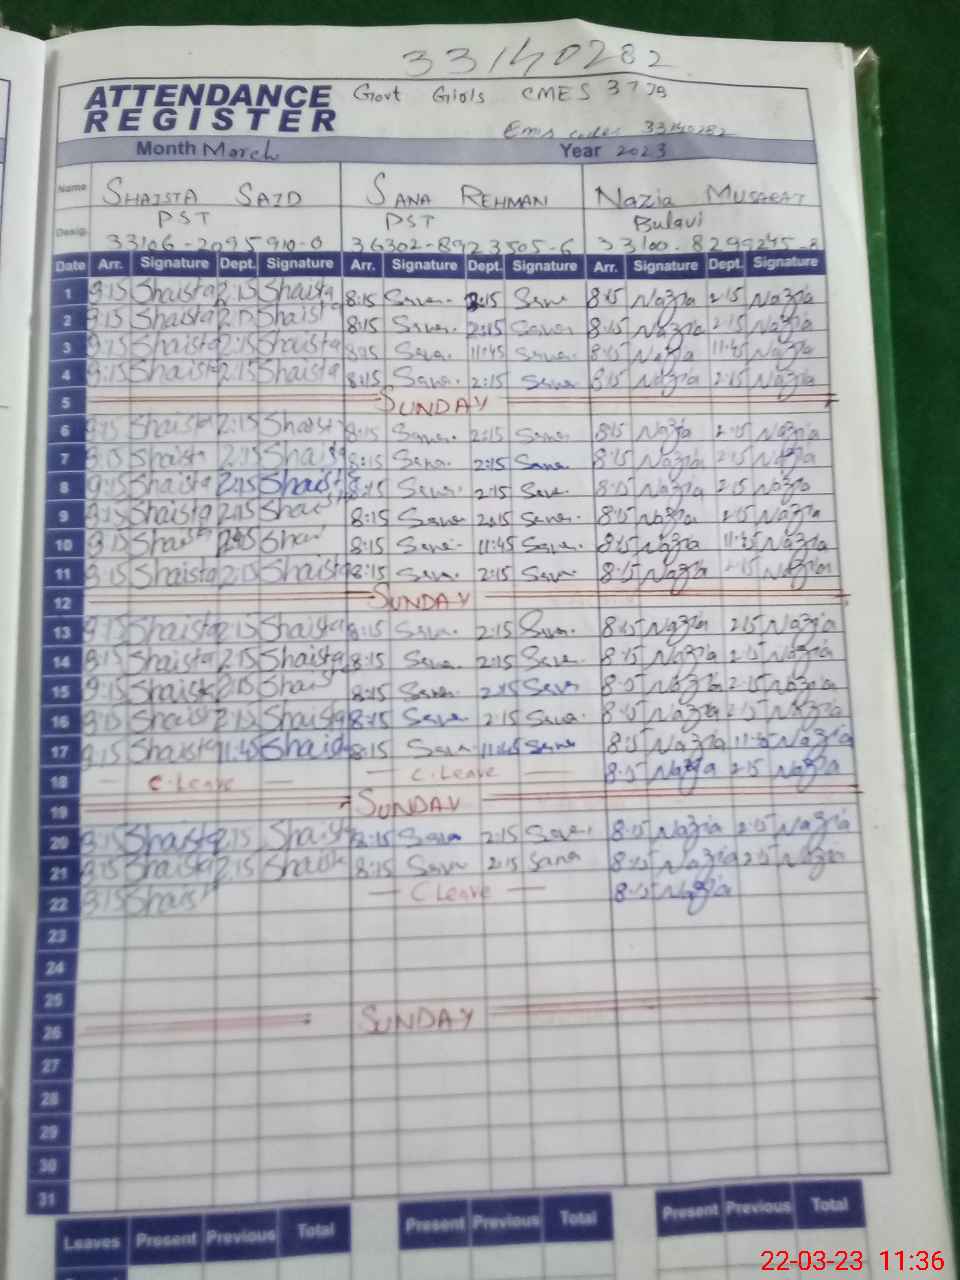 33140282
ATTENDANCE Govt Girls CMES 3779
REGISTER
Emis codes 33140282
Month March Year 2023
Name SHAISTA SAID SANA REHMAN NAZIA MUSARAT
Desig. PST PST Bulavi
33106-2095910-0 36302-8923505-6 33100-8299245-8
Date Arr. Signature Dept. Signature Arr. Signature Dept. Signature Arr. Signature Dept. Signature
1 8:15 Shaista 2:15 Shaista 8:15 Sana 2:15 Sana 8:15 Nazia 2:15 Nazia
2 8:15 Shaista 2:15 Shaist 8:15 Sana 2:15 Sana 8:15 Nazia 2:15 Nazia
3 8:15 Shaista 2:15 Shaista 8:15 Sana 11:45 Sana 8:15 Nazia 11:45 Nazia
4 8:15 Shaista 2:15 Shaista 8:15 Sana 2:15 Sana 8:15 Nazia 2:15 Nazia
5 SUNDAY
6 8:15 Shaista 2:15 Shaist 8:15 Sana 2:15 Sana 8:15 Nazia 2:15 Nazia
7 8:15 Shaista 2:15 Shaista 8:15 Sana 2:15 Sana 8:15 Nazia 2:15 Nazia
8 8:15 Shaista 2:15 Shaist 8:15 Sana 2:15 Sana 8:15 Nazia 2:15 Nazia
9 8:15 Shaista 2:15 Shais 8:15 Sana 2:15 Sana 8:15 Nazia 2:15 Nazia
10 8:15 Shaista Shai 8:15 Sana 11:45 Sana 8:15 Nazia 11:45 Nazia
11 8:15 Shaista 2:15 Shaista 8:15 Sana 2:15 Sana 8:15 Nazia 2:15 Nazia
12 SUNDAY
13 8:15 Shaista 2:15 Shaista 8:15 Sana 2:15 Sana 8:15 Nazia 2:15 Nazia
14 8:15 Shaista 2:15 Shaista 8:15 Sana 2:15 Sana 8:15 Nazia 2:15 Nazia
15 8:15 Shaista 2:15 Shais 8:15 Sana 2:15 Sana 8:15 Nazia 2:15 Nazia
16 8:15 Shaista 2:15 Shaista 8:15 Sana 2:15 Sana 8:15 Nazia 2:15 Nazia
17 8:15 Shaista 11:45 Shaid 8:15 Sana 11:45 Sana 8:15 Nazia 11:45 Nazia
18 — C.Leave — — C.Leave — 8:15 Nazia 2:15 Nazia
19 SUNDAY
20 8:15 Shaista 2:15 Shaist 8:15 Sana 2:15 Sana 8:15 Nazia 2:15 Nazia
21 8:15 Shaista 2:15 Shaist 8:15 Sana 2:15 Sana 8:15 Nazia 2:15 Nazia
22 8:15 Shaist — C Leave — 8:15 Nazia
23
24
25
26 SUNDAY
27
28
29
30
31
Leaves Present Previous Total Present Previous Total Present Previous Total
22-03-23 11:36